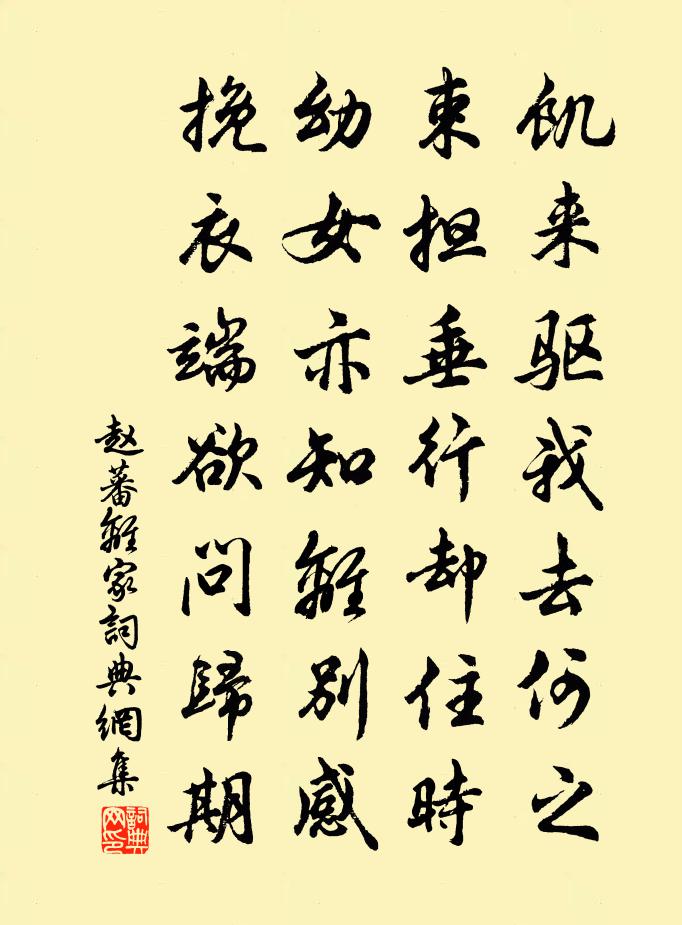 飢来驱我去何之
束担垂行却住时
幼女亦知離别感
挽衣端欲问歸期
赵蕃離家詞典網集
詞典网印